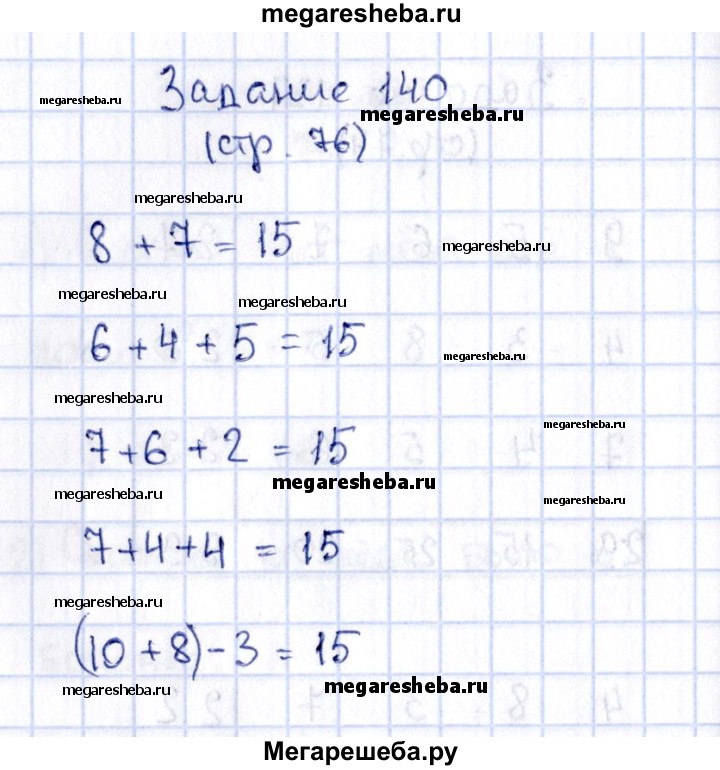 megaresheba.ru
Задание 140
megaresheba.ru
megaresheba.ru
(стр. 76)
megaresheba.ru
8 + 7 = 15
megaresheba.ru
megaresheba.ru
megaresheba.ru
6 + 4 + 5 = 15
megaresheba.ru
megaresheba.ru
7 + 6 + 2 = 15
megaresheba.ru
megaresheba.ru
megaresheba.ru
megaresheba.ru
7 + 4 + 4 = 15
megaresheba.ru
(10 + 8) - 3 = 15
megaresheba.ru
megaresheba.ru
Мегарешеба.ру